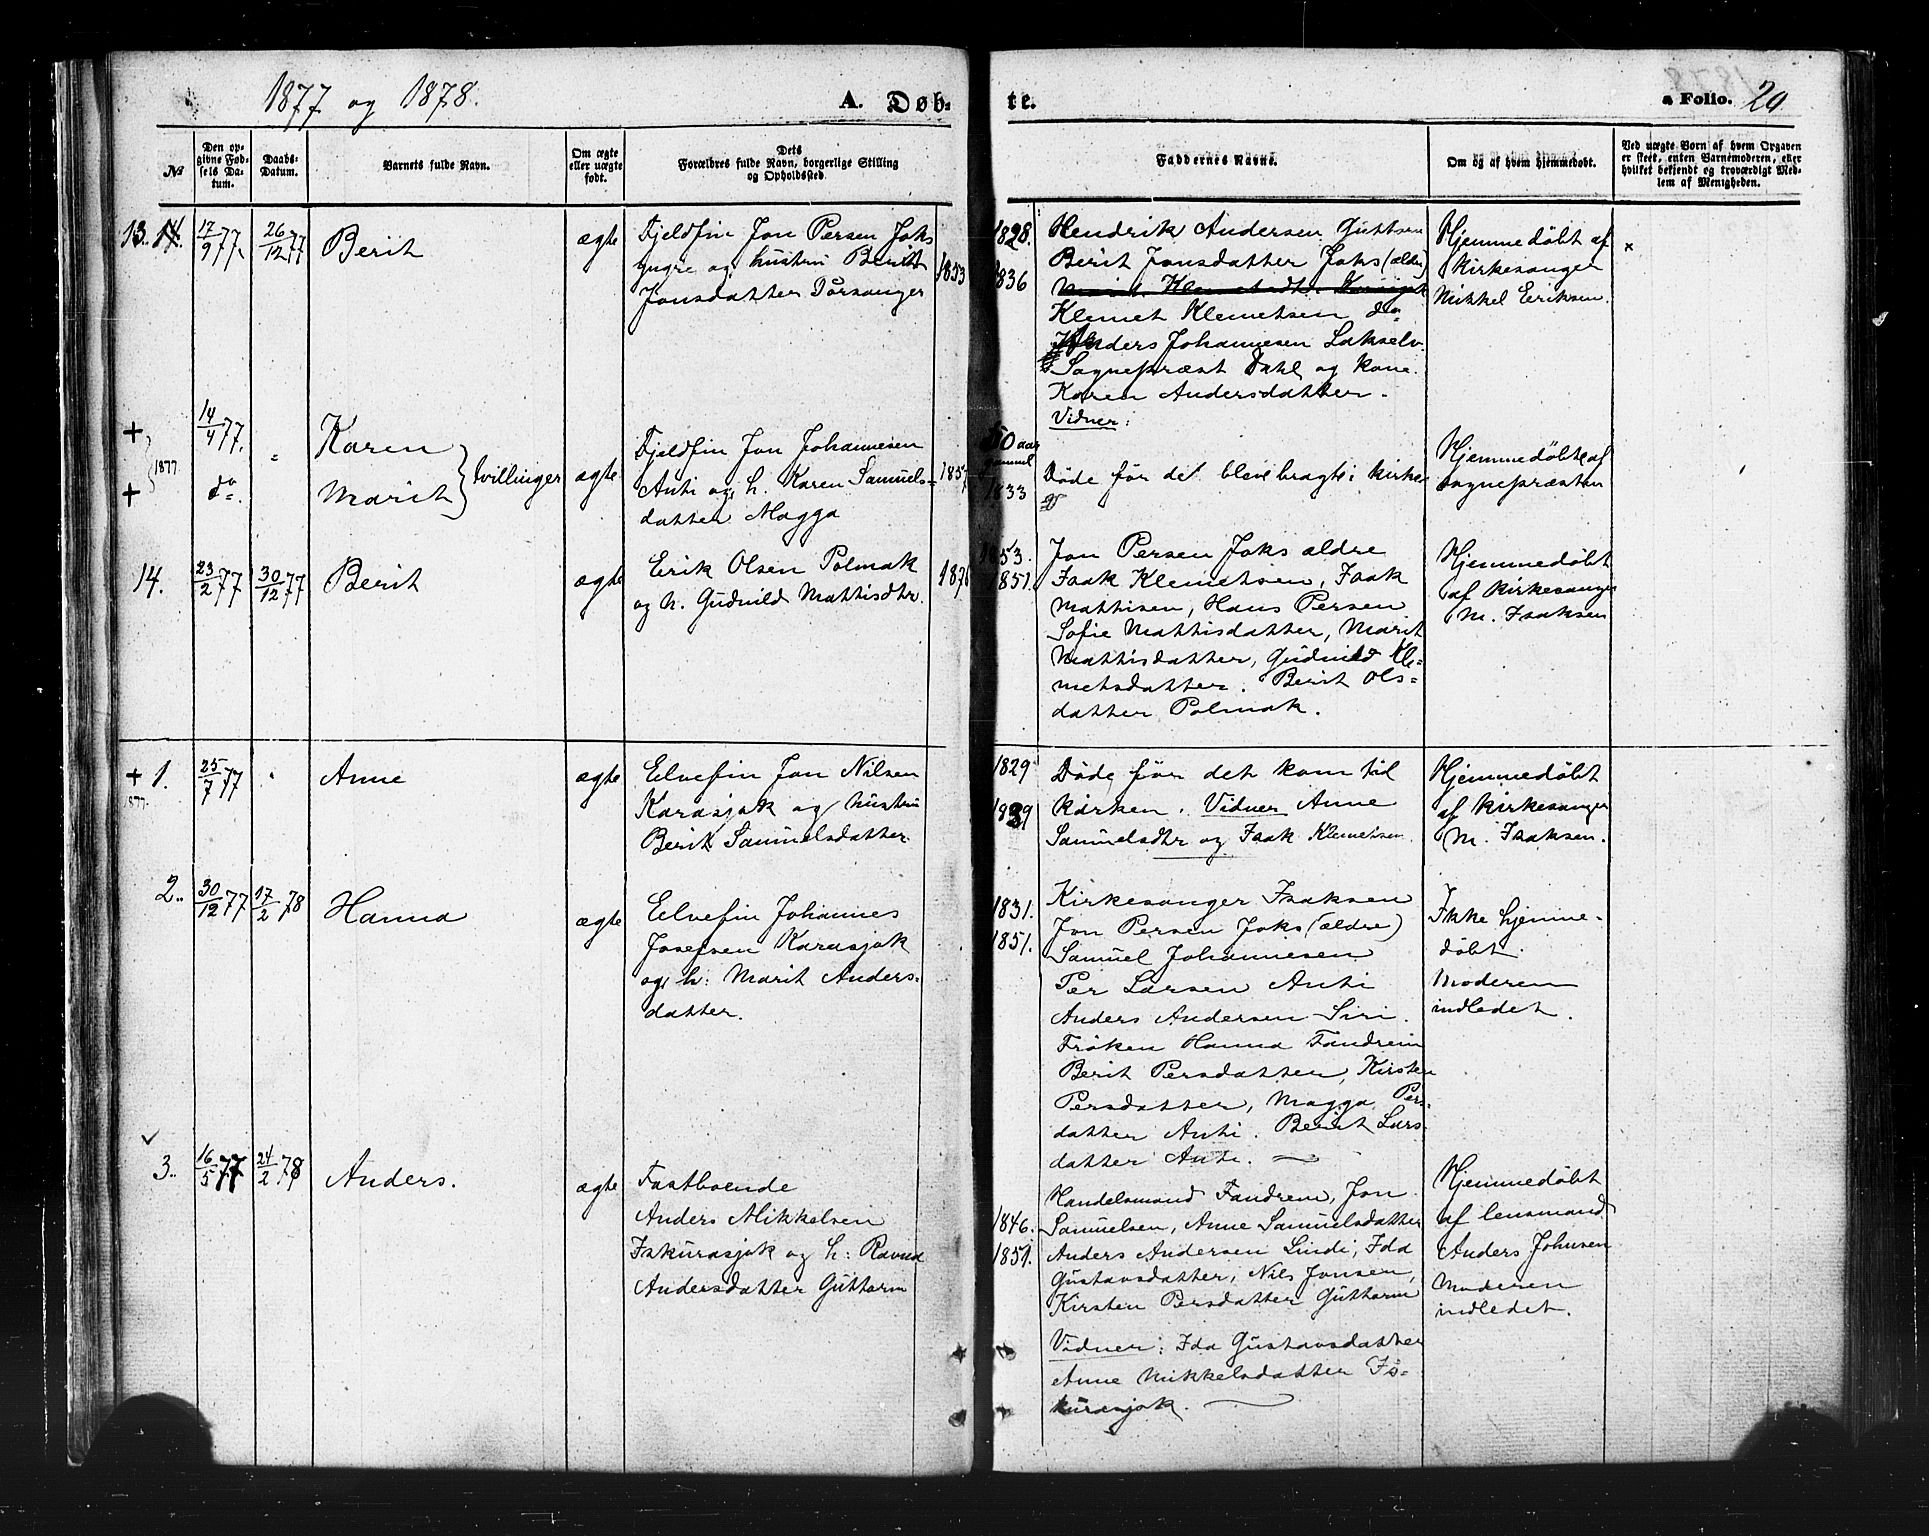 1877 og 1878.
A. Døb-
te.
a Folio. 20
№
Den op-
givne Fød-
sels Da-
tum.
Daabs-
Datum.
Barnets fulde Navn.
Om ægte
eller uægte
født.
Dets
Forældres fulde Navn, borgerlige Stilling
og Opholdssted.
Faddernes Navne.
Om og af hvem hjemmedøbt.
Ved uægte Børn af hvem Opgaven
er skeet, enten Barnemoderen, eller
hvilket bekjendt og troværdigt Med-
lem af Menigheden.
13. 14.
17/9 77.
26/12 77
Berit
ægte
Fjeldfin Jon Persen Joks
yngre og hustru Berit
Jonsdatter Porsanger
1853
1828.
1836
Hendrik Andersen Guttorm
Berit Jonsdatter Joks (ældre)
Klemet Klemetsen do
Anders Johannesen Lakselv
Sognepræst Dahl og kone
Karen Andersdatter.
Vidner:
Hjemmedøbt af
Kirkesanger
Mikkel Eriksen.
×
+
+
1877.
14/4 77.
do.
Karen
Marit
tvillinger
ægte
Fjeldfin Jon Johannesen
Anti og h. Karen Samuels-
datter Magga
1857
50 aar
gammel
1833
Døde før det bleve bragte i kirke
Hjemmedøbte af
sognepræsten
14.
23/2 77
30/12 77
Berit
ægte
Erik Olsen Polmak
og h. Gudnild Mattisdtr.
1876
1853.
1851.
Jon Persen Joks ældre
Isak Klemetsen, Isak
Mattisen, Hans Persen
Sofie Mattisdatter, Marit
Mattisdatter, Gudnild Kle-
metsdatter. Berit Ols-
datter Polmak.
Hjemmedøbt
af Kirkesanger
M. Isaksen
+ 1.
1877.
25/7 77
Anne
ægte
Elvefin Jon Nilsen
Karasjok og hustru
Berit Samuelsdatter.
1829
1839
Døde før det kom til
kirken. Vidner Anne
Samuelsdtr og Isak Klemetsen
Hjemmedøbt
af Kirkesanger
M. Isaksen.
2.
30/12 77
17/2 78
Hanna
ægte
Elvefin Johannes
Josefsen Karasjok
og h: Marit Anders-
datter.
1831.
1851.
Kirkesanger Isaksen
Jon Persen Joks (ældre)
Samuel Johannesen
Per Larsen Anti
Anders Andersen Siri.
Frøken Hanna Fandrem
Berit Persdatter, Kirsten
Persdatter, Magga Pers-
datter Anti. Berit Lars-
datter Anti.
Ikke hjemme-
døbt.
Moderen
indledet.
3.
16/5 77
24/2 78
Anders.
ægte
Fastboende
Anders Mikkelsen
Iskurasjok og h: Ravna
Andersdatter Guttorm
1846.
1851.
Handelsmand Fandrem, Jon
Samuelsen, Anne Samuelsdatter
Anders Andersen Lindi, Ida
Gustavsdatter, Nils Jonsen,
Kirsten Persdatter Guttorm
Vidner: Ida Gustavsdatter
Anne Mikkelsdatter Is-
kurasjok.
Hjemmedøbt
af lensmand
Anders Johnsen
Moderen
indledet.